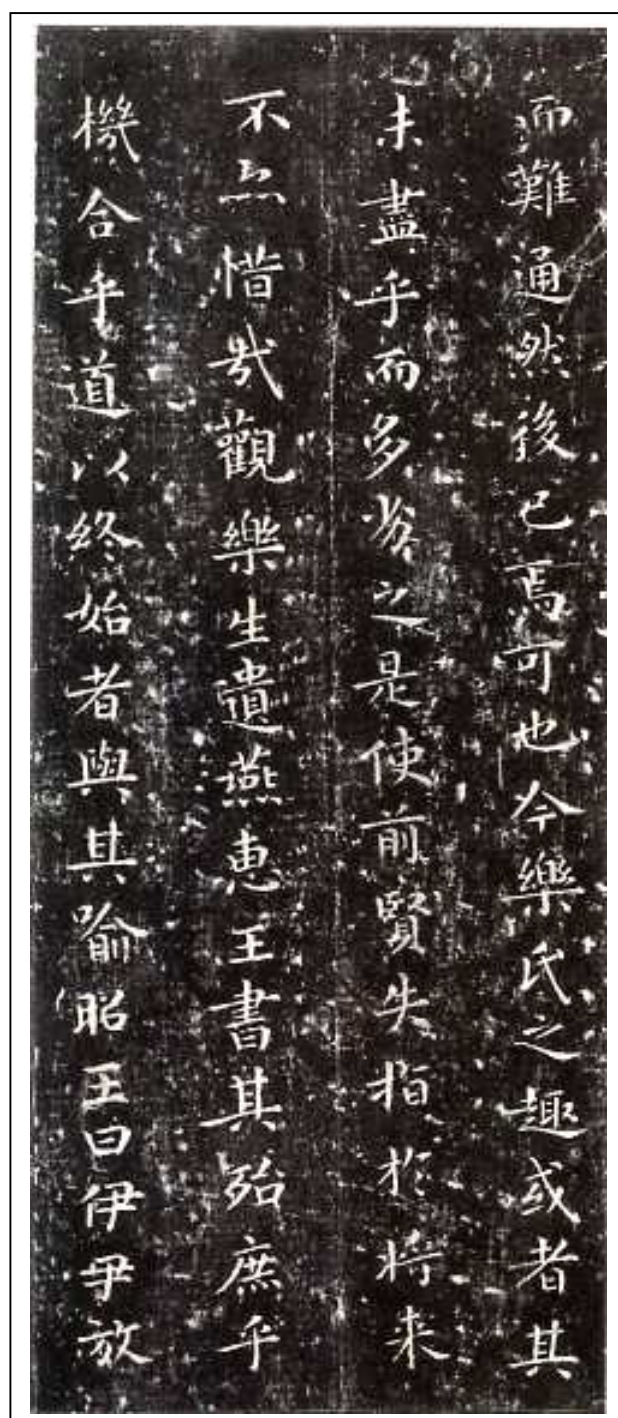 而難通然後已焉可也今樂氏之趣或者其
未盡乎而多劣之是使前賢失指於将来
不亦惜哉觀樂生遺燕惠王書其殆庶乎
機合乎道以終始者與其喻昭王曰伊尹放